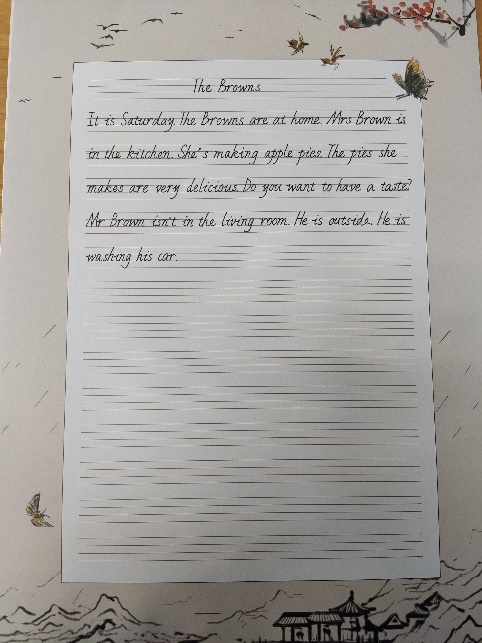 The Browns
It is Saturday. The Browns are at home. Mrs Brown is
in the kitchen. She's making apple pies. The pies she
makes are very delicious. Do you want to have a taste?
Mr Brown isn't in the living room. He is outside. He is
washing his car.